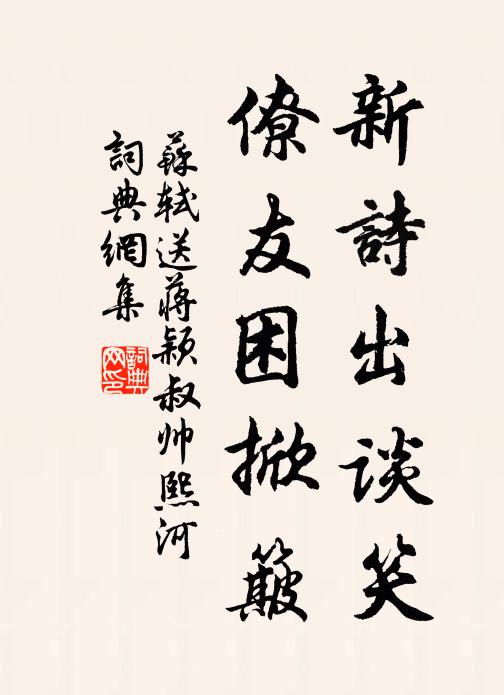 新詩出谈笑
僚友困掀簸
蘇轼送蔣颖叔帅熙河
詞典網集
詞典网印